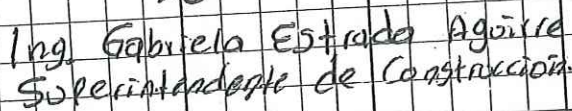 Ing. Gabriela Estrada Aguirre
Superintendente de Construcción.